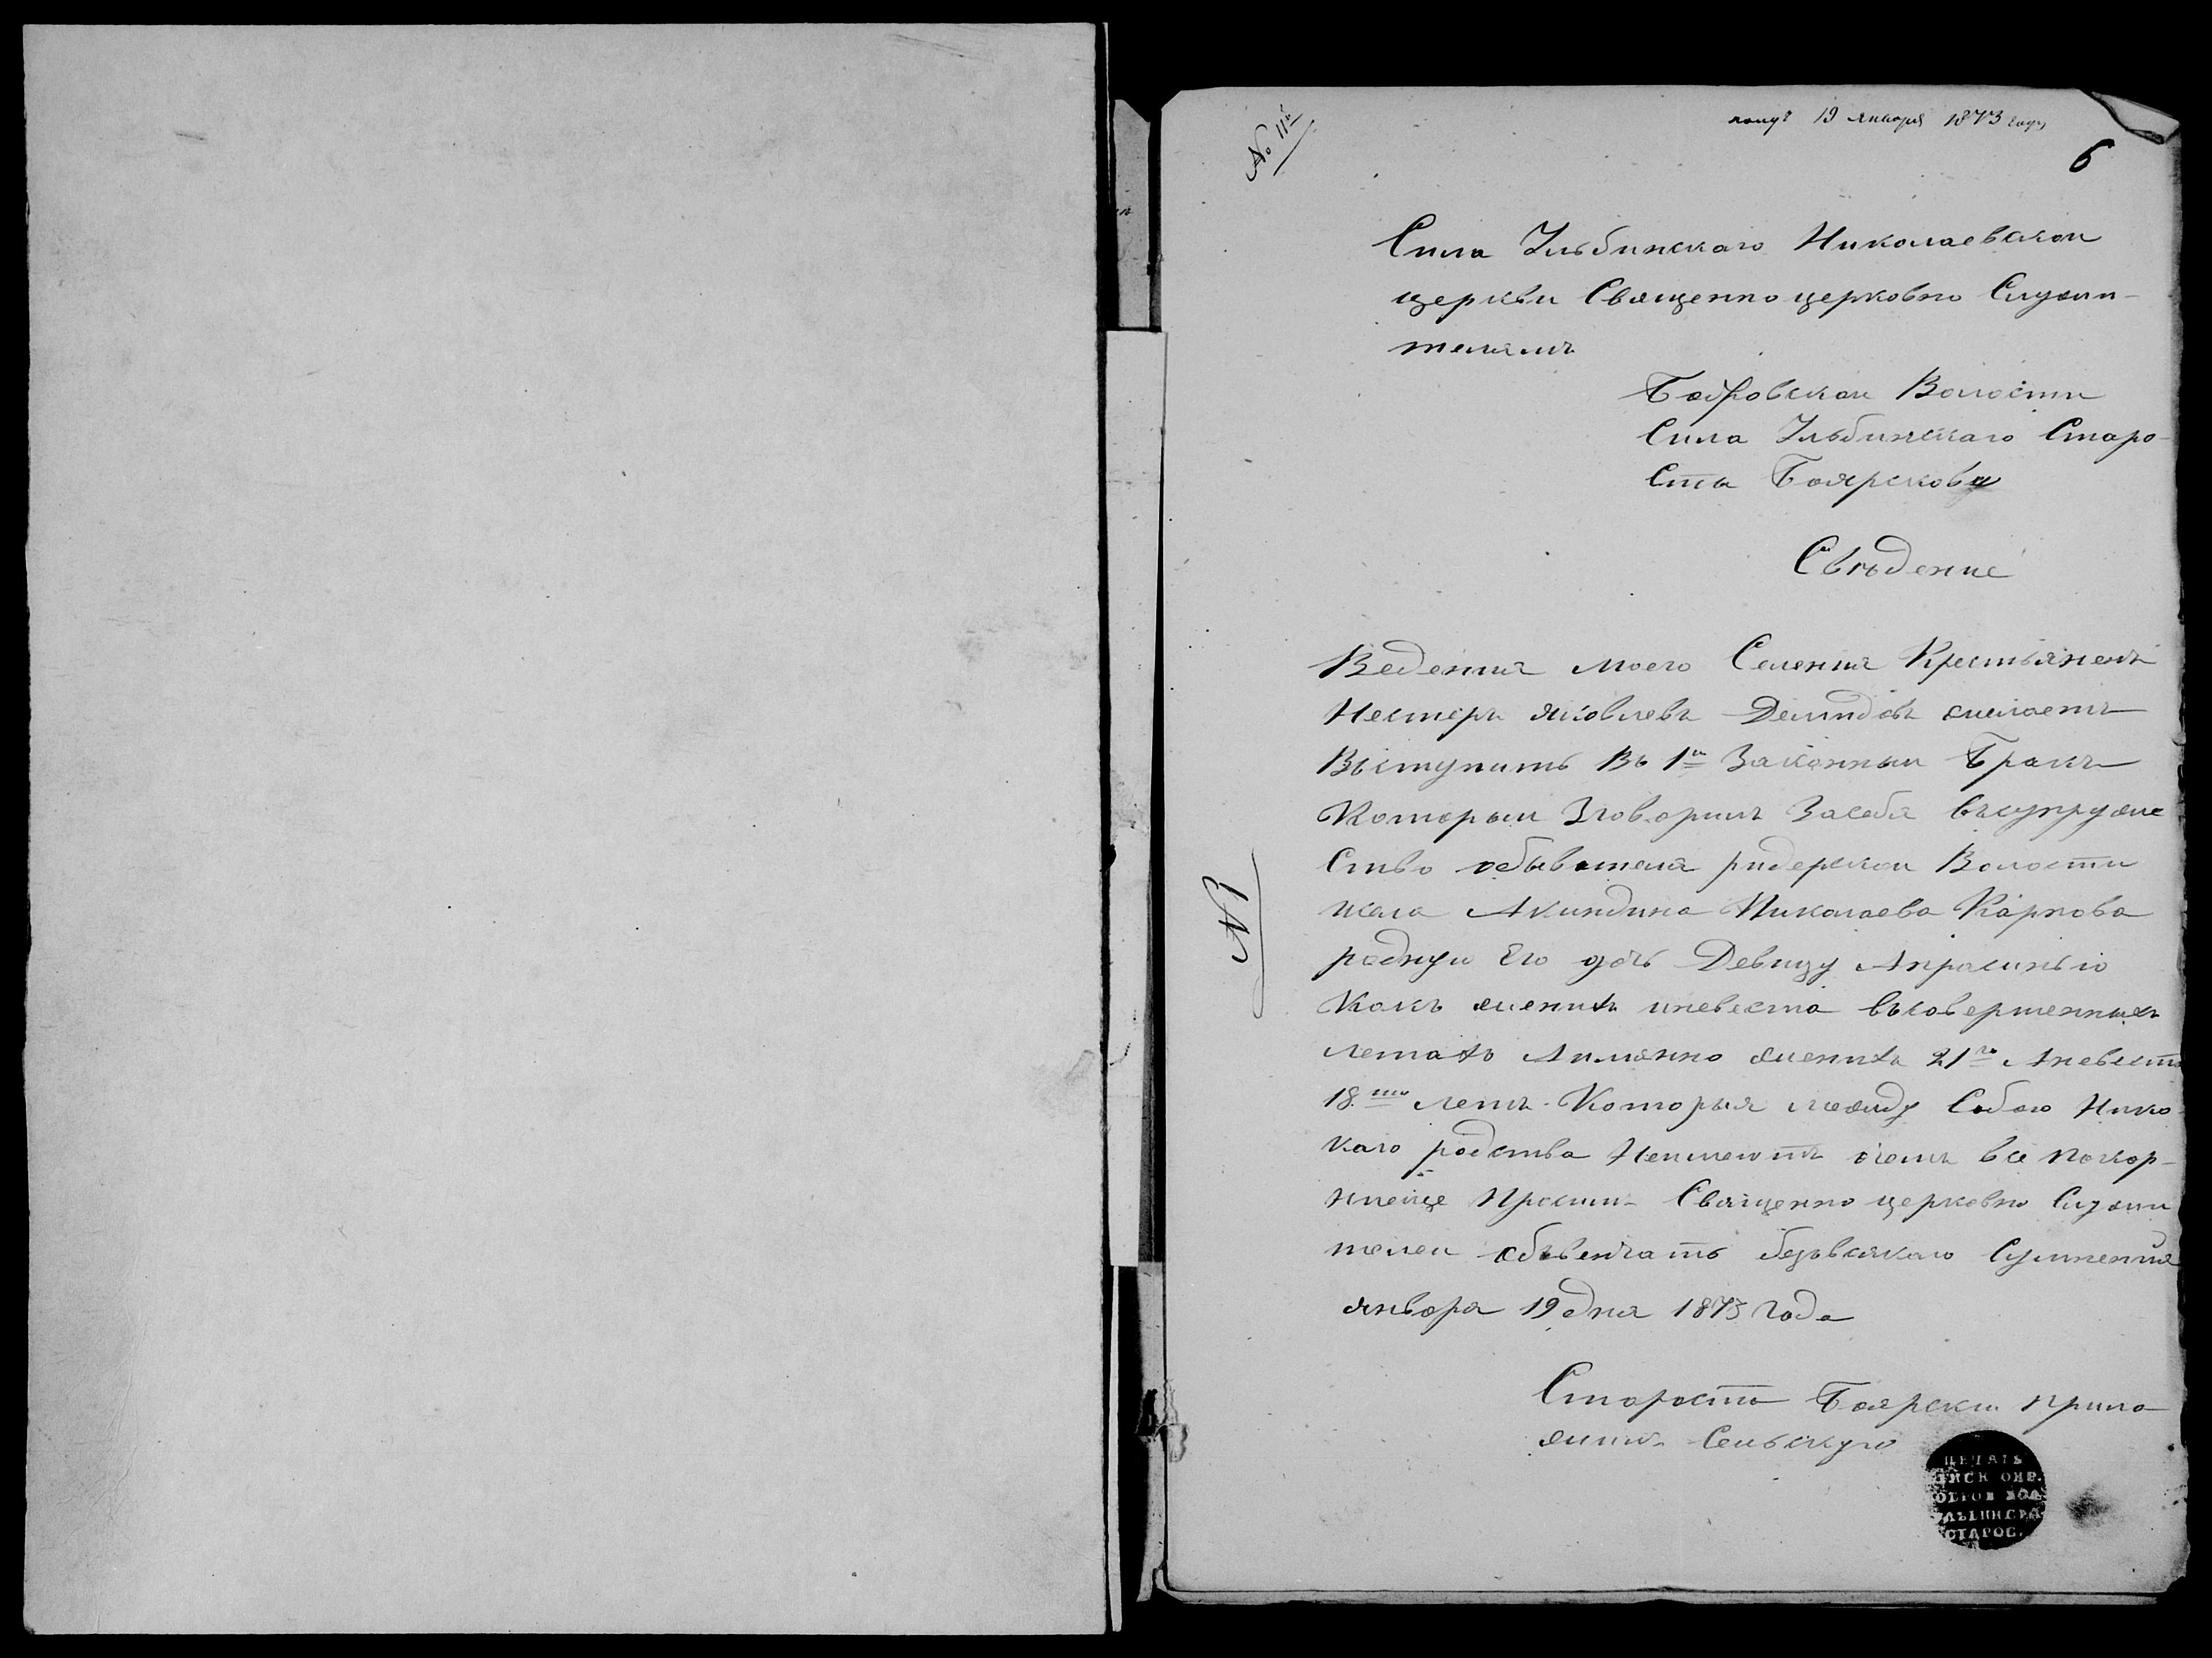 № 11й
получ 19 января 1873 году
6
Сила Ульбинскаго Николаевской
церкви Священно церковно Служи-
телямъ
Бобровскои Волости
Сила Ульбинскаго Старо-
Сты Боярскова
Свѣдение
Ведения моего Селения Крестьяненъ
Нестеръ яковлевъ Демидовъ желаетъ
Въступить Въ 1й Законныи Бракъ
Которыи Зговорилъ Засебя въсупруже
Ство обывателя ридерскои Волости
Акиндина Николаева Карпова
родную Его дочь Девицу Апросинью
Какъ женихъ иневеста въсовершенныхъ
летахъ Аимянно жениха 21го Аневест
18ти летъ Которыя между Собою Нико
каго родства Неимеютъ очемъ все покор-
Нпеище Просим Священно церковно Служи
телеи объвенчать безвсякаго Сумнения
января 19 дня 1873 Года
Староста Боярски прило
жилъ Сельскую
ПЕЧАТЬ
СТАРОС.
№ 1